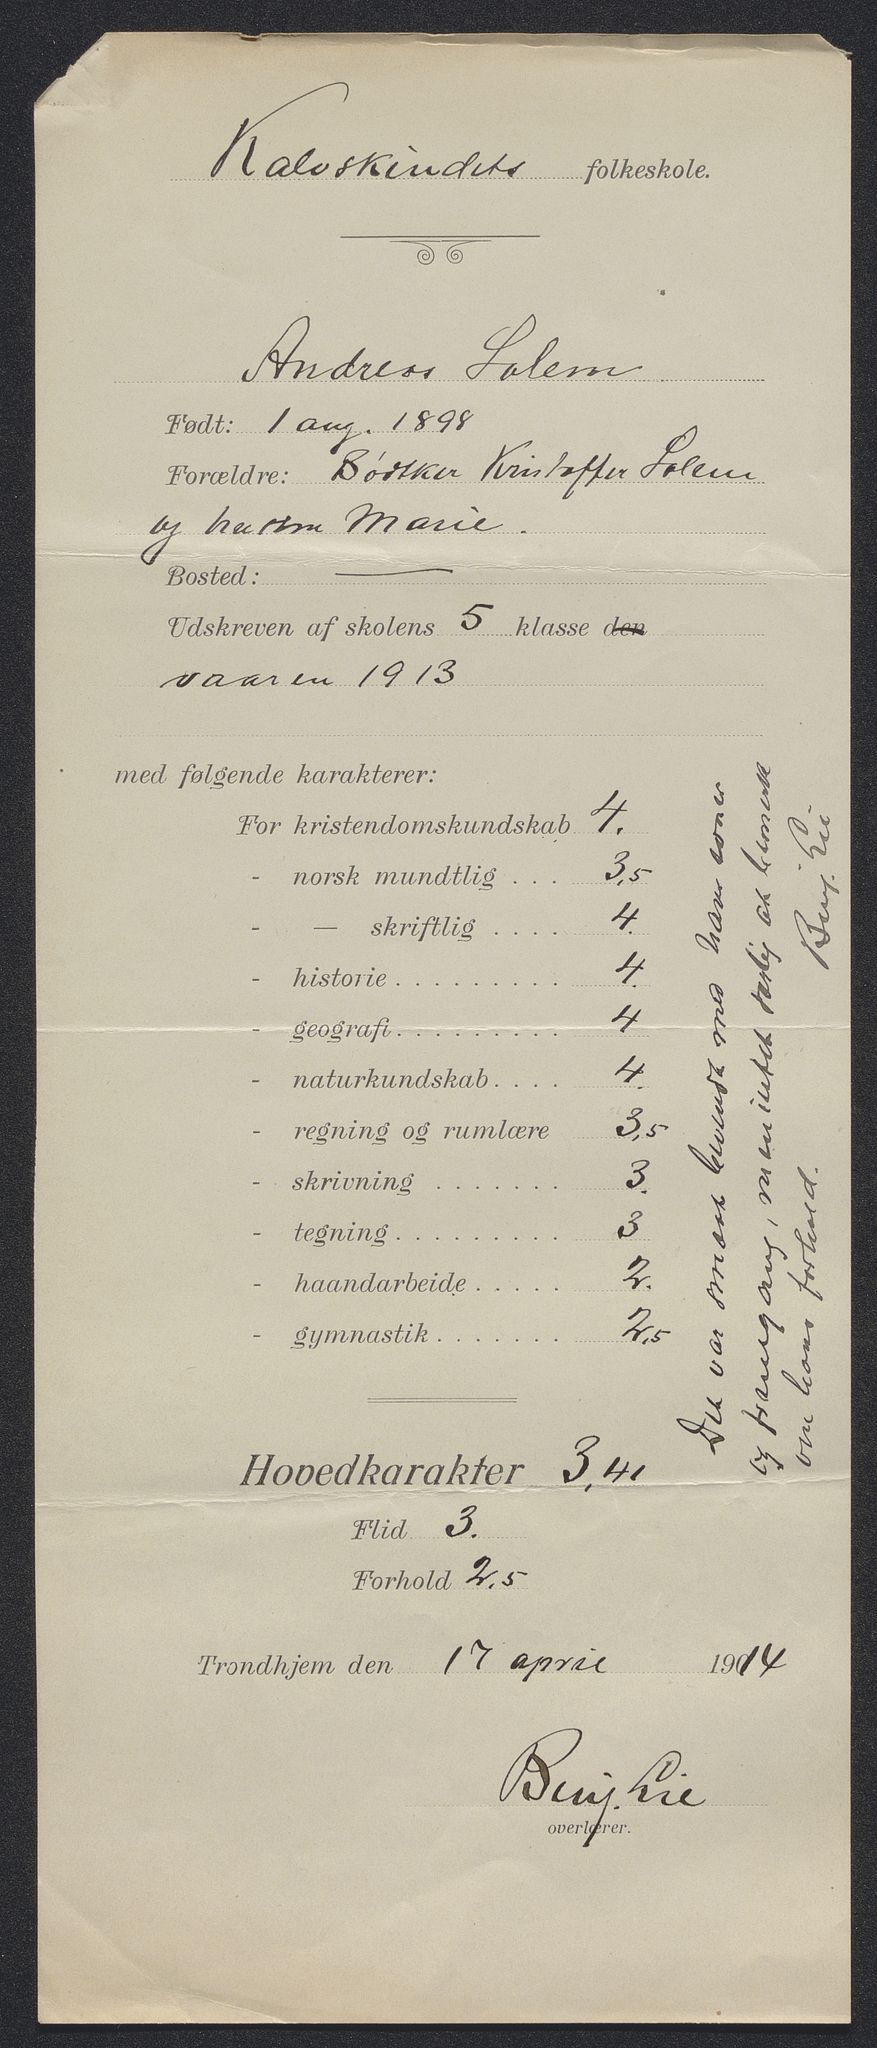 Kalvskindets folkeskole.
Andreas Solem
Født: 1 aug. 1898
Forældre: Bødtker Kristoffer Solem
og hustru Marie.
Bosted: —
Udskreven af skolens 5 klasse den
vaaren 1913
med følgende karakterer:
For kristendomskundskab 4.
- norsk mundtlig . . . 3,5
- — skriftlig . . . . 4.
- historie . . . . . . . . . 4.
- geografi . . . . . . . . . 4
- naturkundskab . . . . 4.
- regning og rumlære 3,5
- skrivning . . . . . . . 3.
- tegning . . . . . . . . . 3
- haandarbeide . . . . . 2.
- gymnastik . . . . . . . 2,5
Hovedkarakter 3,41
Flid 3.
Forhold 2,5
Trondhjem den 17 april 1914
Benj. Lie
overlærer.
Det var smaat bevendt med hans evner
og fremgang, men intet særlig at bemerke
om hans forhold.
Benj. Lie